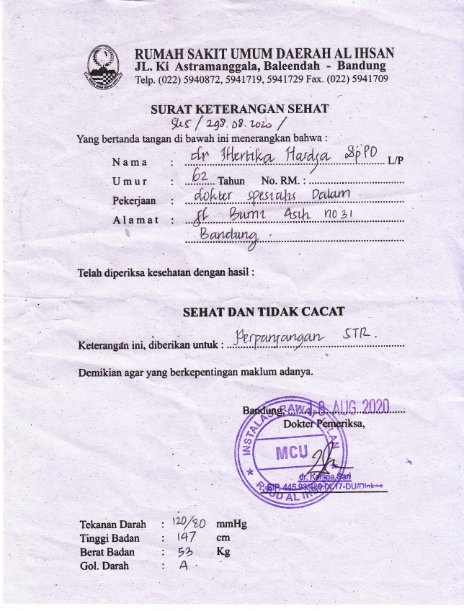 RUMAH SAKIT UMUM DAERAH AL IHSAN
JL. Ki Astramanggala, Baleendah - Bandung
Telp. (022) 5940872, 5941719, 5941729 Fax. (022) 5941709
SURAT KETERANGAN SEHAT
/ 298.08.2020 /
Yang bertanda tangan di bawah ini menerangkan bahwa :
Nama : dr Hertika Hardja SpPD L/P
Umur : 62 Tahun No. RM. :
Pekerjaan : dokter spesialis Dalam
Alamat : Jl Bumi Asih no 31
Bandung.
Telah diperiksa kesehatan dengan hasil :
SEHAT DAN TIDAK CACAT
Keterangan ini, diberikan untuk : Perpanjangan STR.
Demikian agar yang berkepentingan maklum adanya.
Bandung, 18 AUG 2020
Dokter Pemeriksa,
INSTALASI RAWAT JALAN
MCU
RSUD AL IHSAN
dr. Karina Sari
Tekanan Darah : 120/80 mmHg
Tinggi Badan : 147 cm
Berat Badan : 53 Kg
Gol. Darah : A.